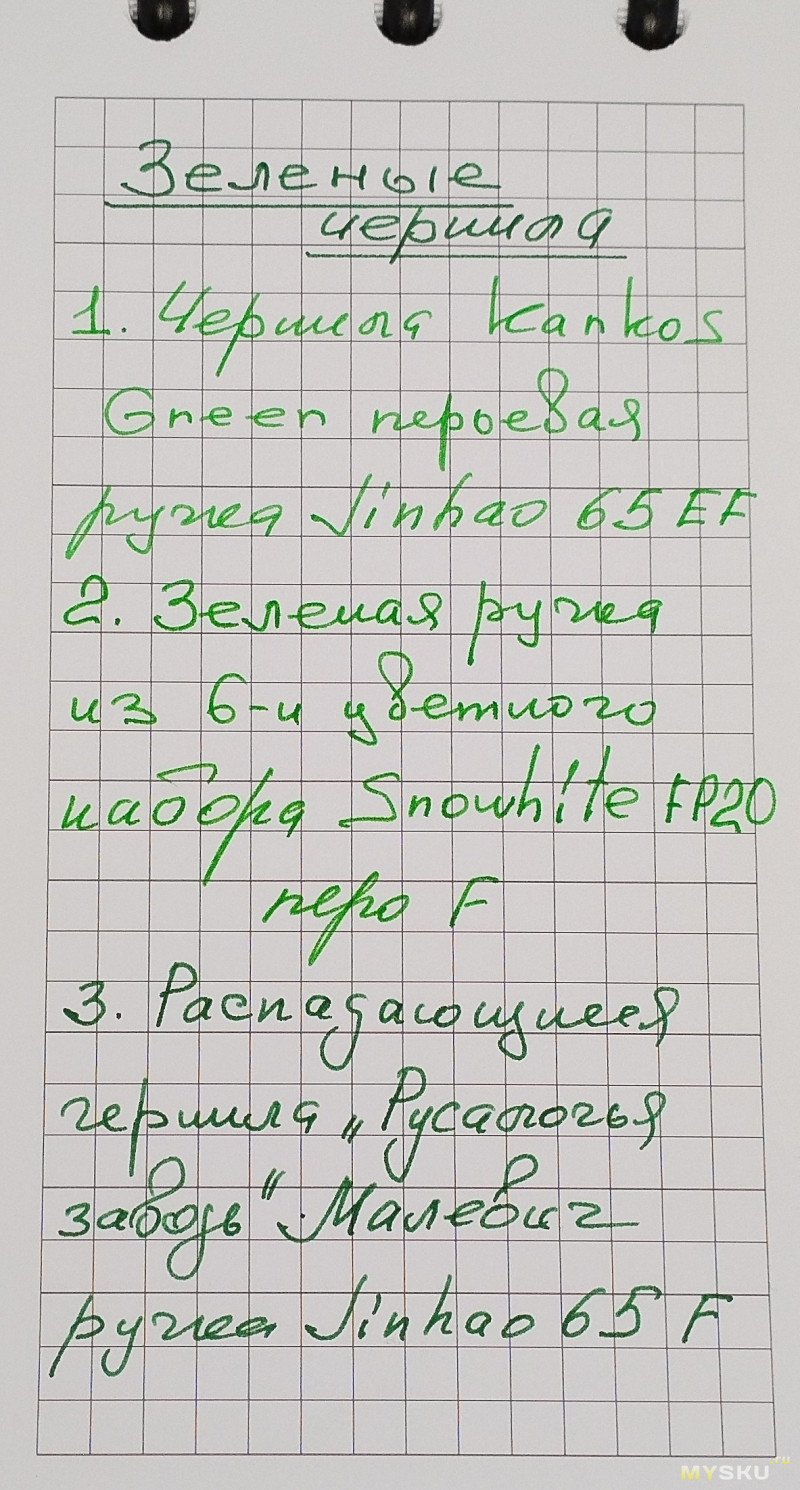 Зеленые
чернила
1. Чернила Kankos
Green перьевая
ручка Jinhao 65 EF
2. Зеленая ручка
из 6-и цветного
набора Snowhite FP20
перо F
3. Распадающиеся
чернила „Русалочья
заводь" Малевич
ручка Jinhao 65 F
MYSKU.ru